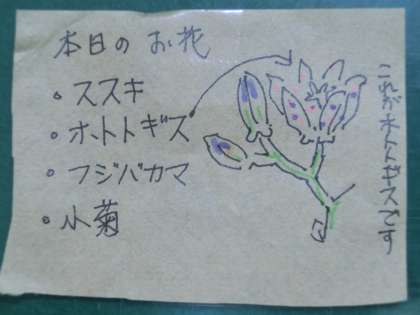 本日のお花
・ススキ
・ホトトギス
・フジバカマ
・小菊
これがホトトギスです